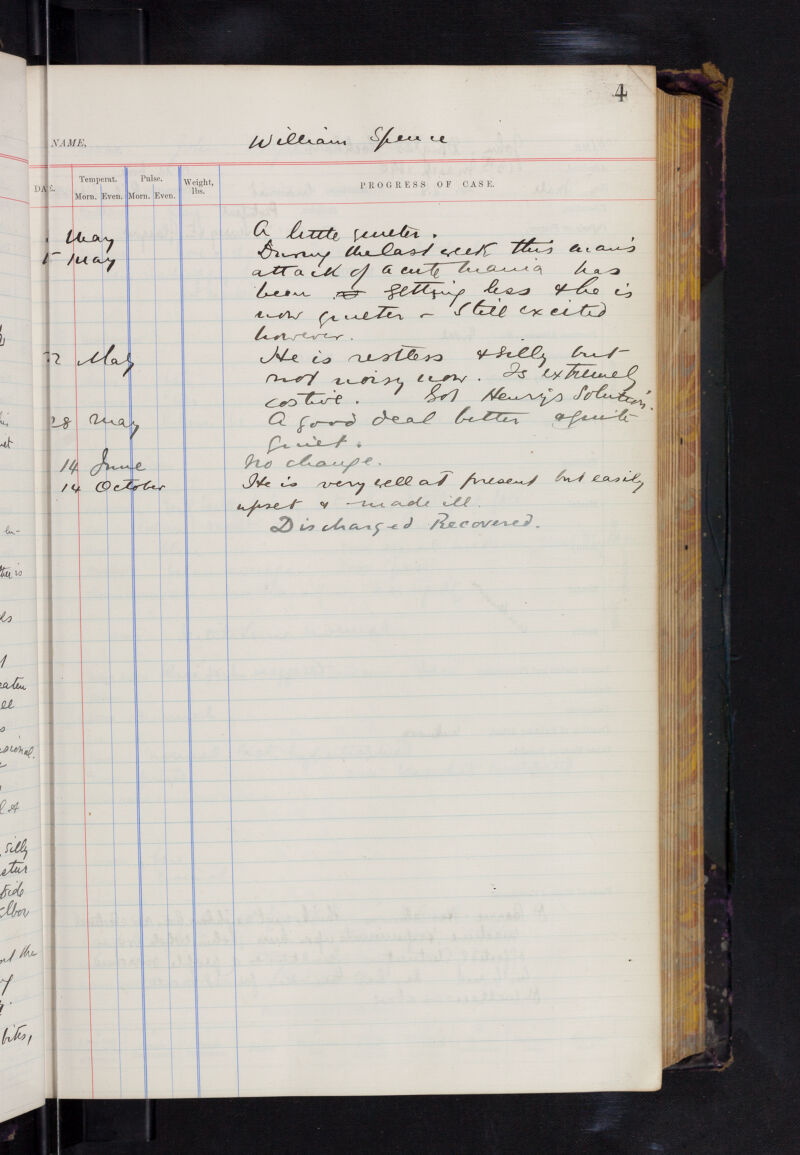 4
NAME, William Spence
DATE. Temperat. Morn. Even. Pulse. Morn. Even. Weight, lbs. PROGRESS OF CASE.
May A little quieter.
May During the last week this man's
attack of acute mania has
been getting less & he is
now quieter - Still excited
however.
May He is restless & silly but
not noisy now. Is extremely
costive. Got Henry's Solution.
28 May A good deal better & quite
quiet.
14 June No change.
14 October He is very well at present but easily
upset & made ill.
Discharged Recovered.
eaten
silly
Side
Elbow
bites,